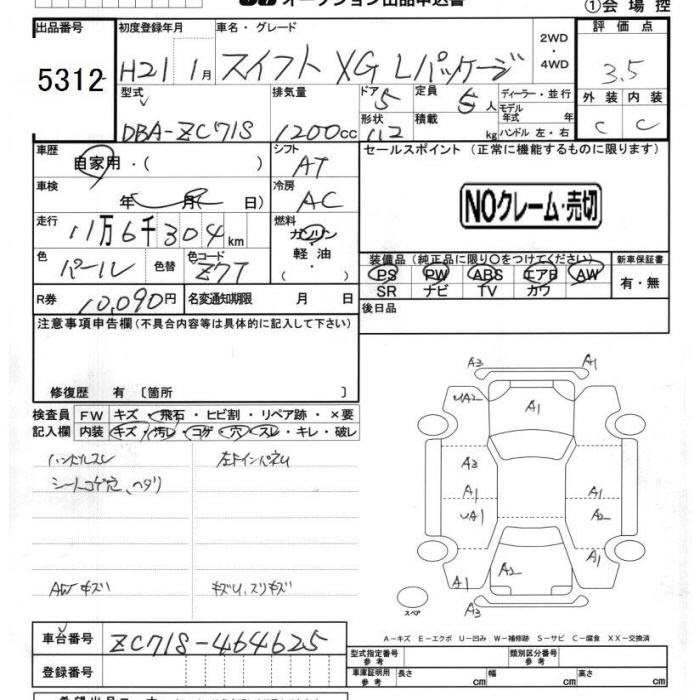 オークション出品申込書
①会場控
出品番号
5312
初度登録年月
H21 1月
車名・グレード
スイフト XG Lパッケージ
2WD
・
4WD
評価点
3.5
外装 内装
C C
型式
DBA-ZC71S
排気量
1200cc
ドア 5
形状
定員 5人
積載 kg
ディーラー・並行
モデル
年式 年
ハンドル 左・右
車歴
自家用・( )
シフト
AT
車検
年 月( 日)
冷房
AC
走行
11万6千304km
燃料
ガソリン
軽油
( ・ )
色
パール
色替
色コード
Z7T
R券
10,090円
名変通知期限 月 日
セールスポイント(正常に機能するものに限ります)
NOクレーム・売切
装備品(純正品に限り○をつけてください)
PS PW ABS エアB AW
SR ナビ TV カワ
新車保証書
有・無
後日品
注意事項申告欄(不具合内容等は具体的に記入して下さい)
修復歴 有〔箇所 〕
検査員
記入欄
FW キズ・飛石・ヒビ割・リペア跡・×要
内装 キズ・汚レ・コゲ・穴・スレ・キレ・破レ
ハンドルスレ
シートコゲ穴、ヘタリ
AWキズ
A3 A1
UA2 A1
A3
A1
UA1 A2
A1
A1 A2
A3
スペア
A-キズ E-エクボ U-凹み W-補修跡 S-サビ C-腐食 XX-交換済
車台番号
ZC71S-464625
登録番号
型式指定番号
参考
類別区分番号
参考
車庫証明用
参考
長さ cm
幅 cm
高さ cm